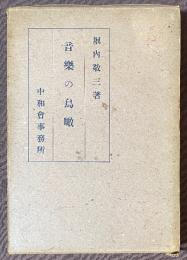 堀内敬三著
音樂の鳥瞰
中和會事務所